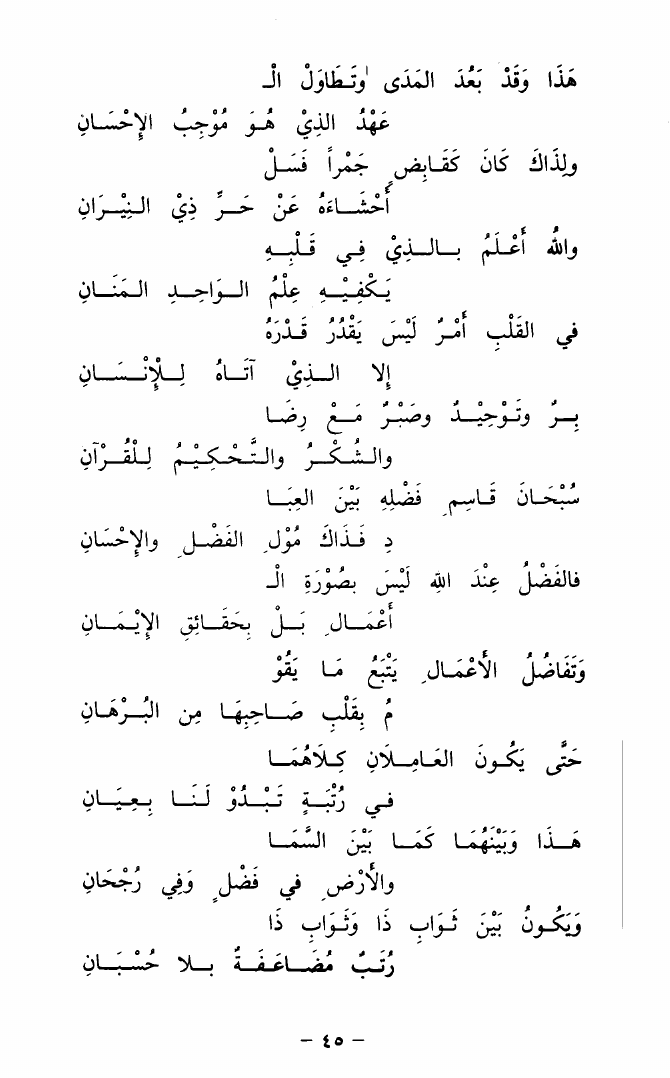 هَذَا وَقَدْ بَعُدَ المَدَى وَتَطَاوَلْ الـ
عَهْدُ الذِيْ هُوَ مُوْجِبُ الإِحْسَانِ
ولِذَاكَ كَانَ كَقَابِضٍ جَمْراً فَسَلْ
أَحْشَاءَهُ عَنْ حَرِّ ذِيْ النِيْرَانِ
والله أَعْلَمُ بالذِيْ فِي قَلْبِهِ
يَكْفِيْهِ عِلْمُ الوَاحِدِ المَنَانِ
في القَلْبِ أَمْرٌ لَيْسَ يَقْدُرُ قَدْرَهُ
إِلا الذِيْ آتَاهُ لِلْإِنْسَانِ
بِرٌ وتَوْحِيْدٌ وصَبْرٌ مَعْ رِضَا
والشُكْرُ والتَّحْكِيْمُ لِلْقُرْآنِ
سُبْحَانَ قَاسِمِ فَضْلِهِ بَيْنَ العِبَا
دِ فَذَاكَ مُوْلِ الفَضْلِ والإِحْسَانِ
فَالفَضْلُ عِنْدَ اللهِ لَيْسَ بِصُوْرَةِ الـ
أَعْمَالِ بَلْ بِحَقَائِقِ الإِيْمَانِ
وَتَفَاضُلُ الأَعْمَالِ يَتْبَعُ مَا يَقُوْ
مُ بِقَلْبِ صَاحِبِهَا مِن البُرْهَانِ
حَتَّى يَكُونَ العَامِلَانِ كِلَاهُمَا
في رُتْبَةٍ تَبْدُوْ لَنَا بِعِيَانِ
هَذَا وَبَيْنَهُمَا كَمَا بَيْنَ السَّمَا
والأَرْضِ في فَضْلٍ وَفِي رُجْحَانِ
وَيَكُونُ بَيْنَ ثَوَابِ ذَا وَثَوَابِ ذَا
رُتَبٌ مُضَاعَفَةٌ بِلا حُسْبَانِ
– ٤٥ –